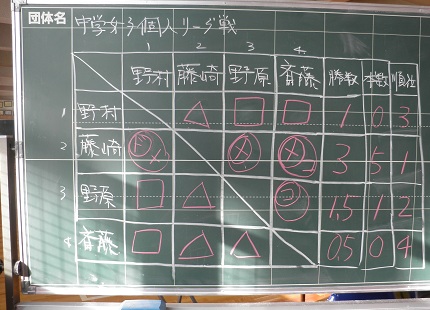 団体名
中学女子個人リーグ戦
1 2 3 4
野村 藤崎 野原 斉藤 勝数 本数 順位
1 野村 △ □ □ 1 0 3
2 藤崎 3 5 1
3 野原 □ △ 1.5 1 2
4 斉藤 □ △ △ 0.5 0 4